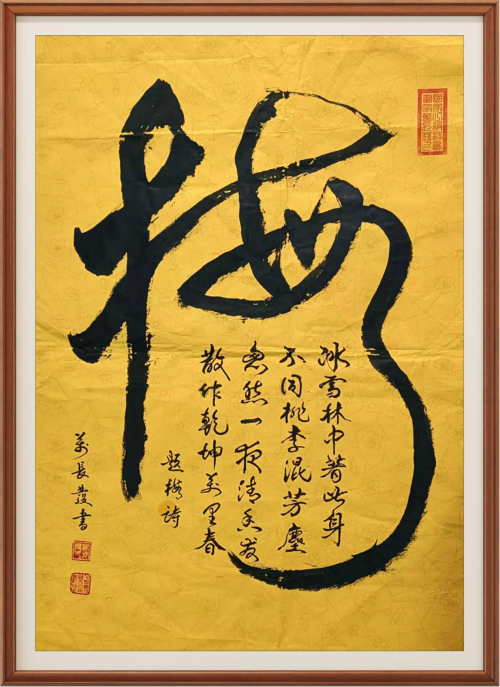 梅
冰雪林中著此身
不同桃李混芳塵
忽然一夜清香发
散作乾坤万里春
题梅诗
万長發書